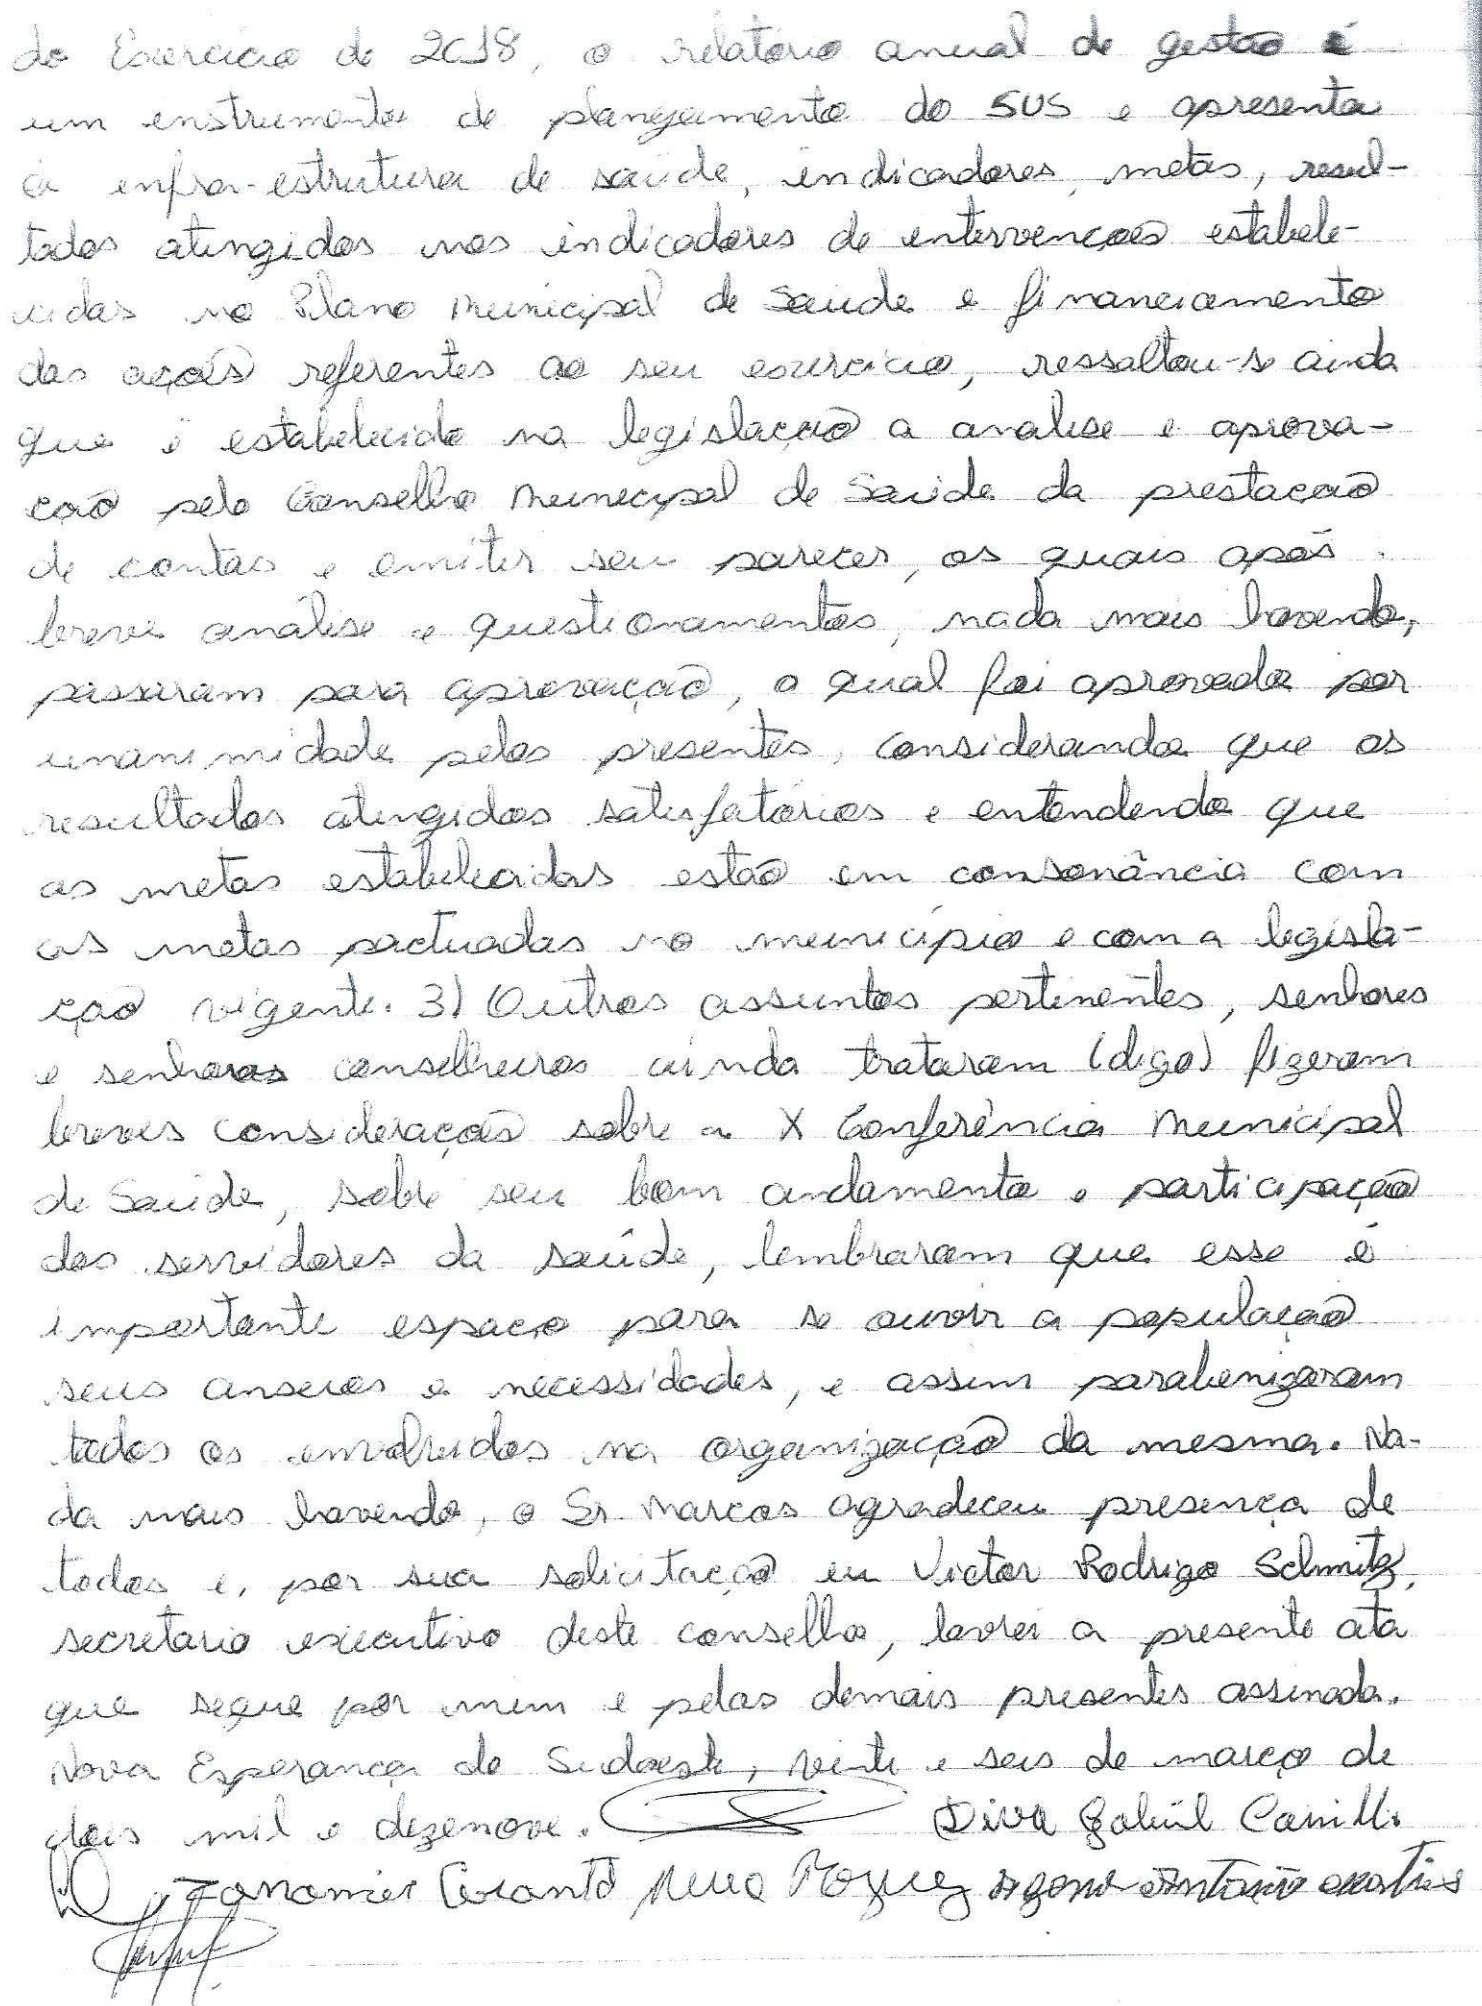 do Exercício de 2018, o relatório anual de gestão é
um enstrumento de planejamento do SUS e apresenta
a enfra-estrutura de saúde, indicadores, metas, resul-
tados atingidos nos indicadores de intervenções estabele-
cidas no Plano Municipal de Saúde e financiamento
das ações referentes ao seu exercício, ressaltou-se ainda
que é estabelecido na legislação a analise e aprova-
ção pelo Conselho Municipal de Saúde da prestação
de contas e emitir seu parecer, os quais após
breve análise e questionamentos, nada mais havendo,
passaram para aprovação, o qual foi aprovada por
unanimidade pelos presentes, considerando que os
resultados atingidos satisfatórios e entendendo que
as metas estabelecidas estão em consonância com
as metas pactuadas no município e com a legisla-
ção vigente. 3) Outros assuntos pertinentes, senhores
e senhoras conselheiros ainda trataram (digo) fizeram
breves considerações sobre a X Conferência Municipal
de Saúde, sobre seu bom andamento e participação
dos servidores da saúde, lembraram que esse é
importante espaço para se ouvir a população
seus anseios e necessidades, e assim parabenizaram
todos os envolvidos na organização da mesma. Na-
da mais havendo, o Sr. Marcos agradeceu presença de
todos e, por sua solicitação eu Victor Rodrigo Schmitz,
secretario executivo deste conselho, lavrei a presente ata
que segue por mim e pelos demais presentes assinada.
Nova Esperança do Sudoeste, vinte e seis de março de
dois mil e dezenove. Diva
Antonio